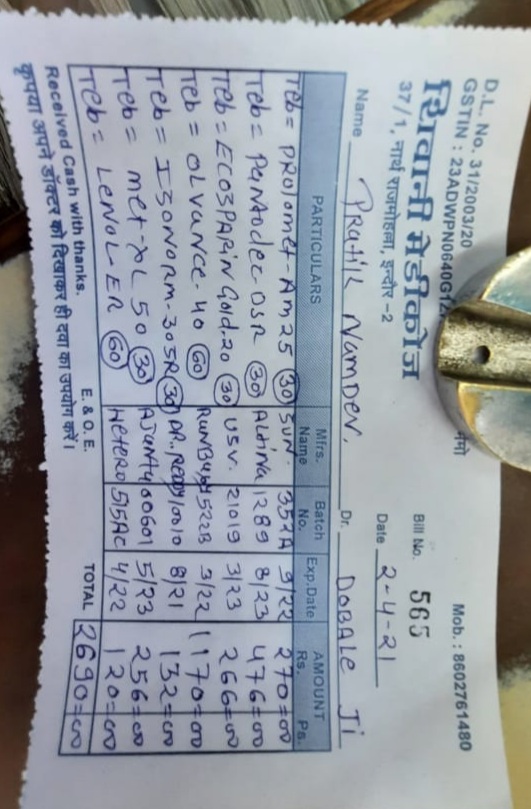 D.L. No. 31/2003/20
GSTIN : 23ADWPN0640G1Z
Mob. : 8602761480
शिवानी मेडीकोज
37/1, नार्थ राजमोहल्ला, इन्दौर -2
Bill No. 565
Date 2-4-21
Name Pratik Namdev. Dr. DOBALE Ji
PARTICULARS Mfrs. Name Batch No. Exp.Date AMOUNT Rs. Ps.
Teb= PROlomet-Am25 (30) SUN. 352A 9/22 270=00
Teb= PaNtodec-DSR (30) Altina 1289 8/23 476=00
Teb= ECOSPARIN Gold-20 (30) USV. 21019 3/23 266=00
Teb= OLVANCE-40 (60) RanBaxy 5223 3/22 1170=00
Teb= ISONORM-30SR (30) DR. Reddy 10010 8/21 132=00
Teb= met-XL 50 (30) 5/23 256=00
Teb= LeNOL-ER (60) Hetero 515AC 4/22 120=00
Received Cash with thanks. E. & O. E. TOTAL 2690=00
कृपया अपने डॉक्टर को दिखाकर ही दवा का उपयोग करें।